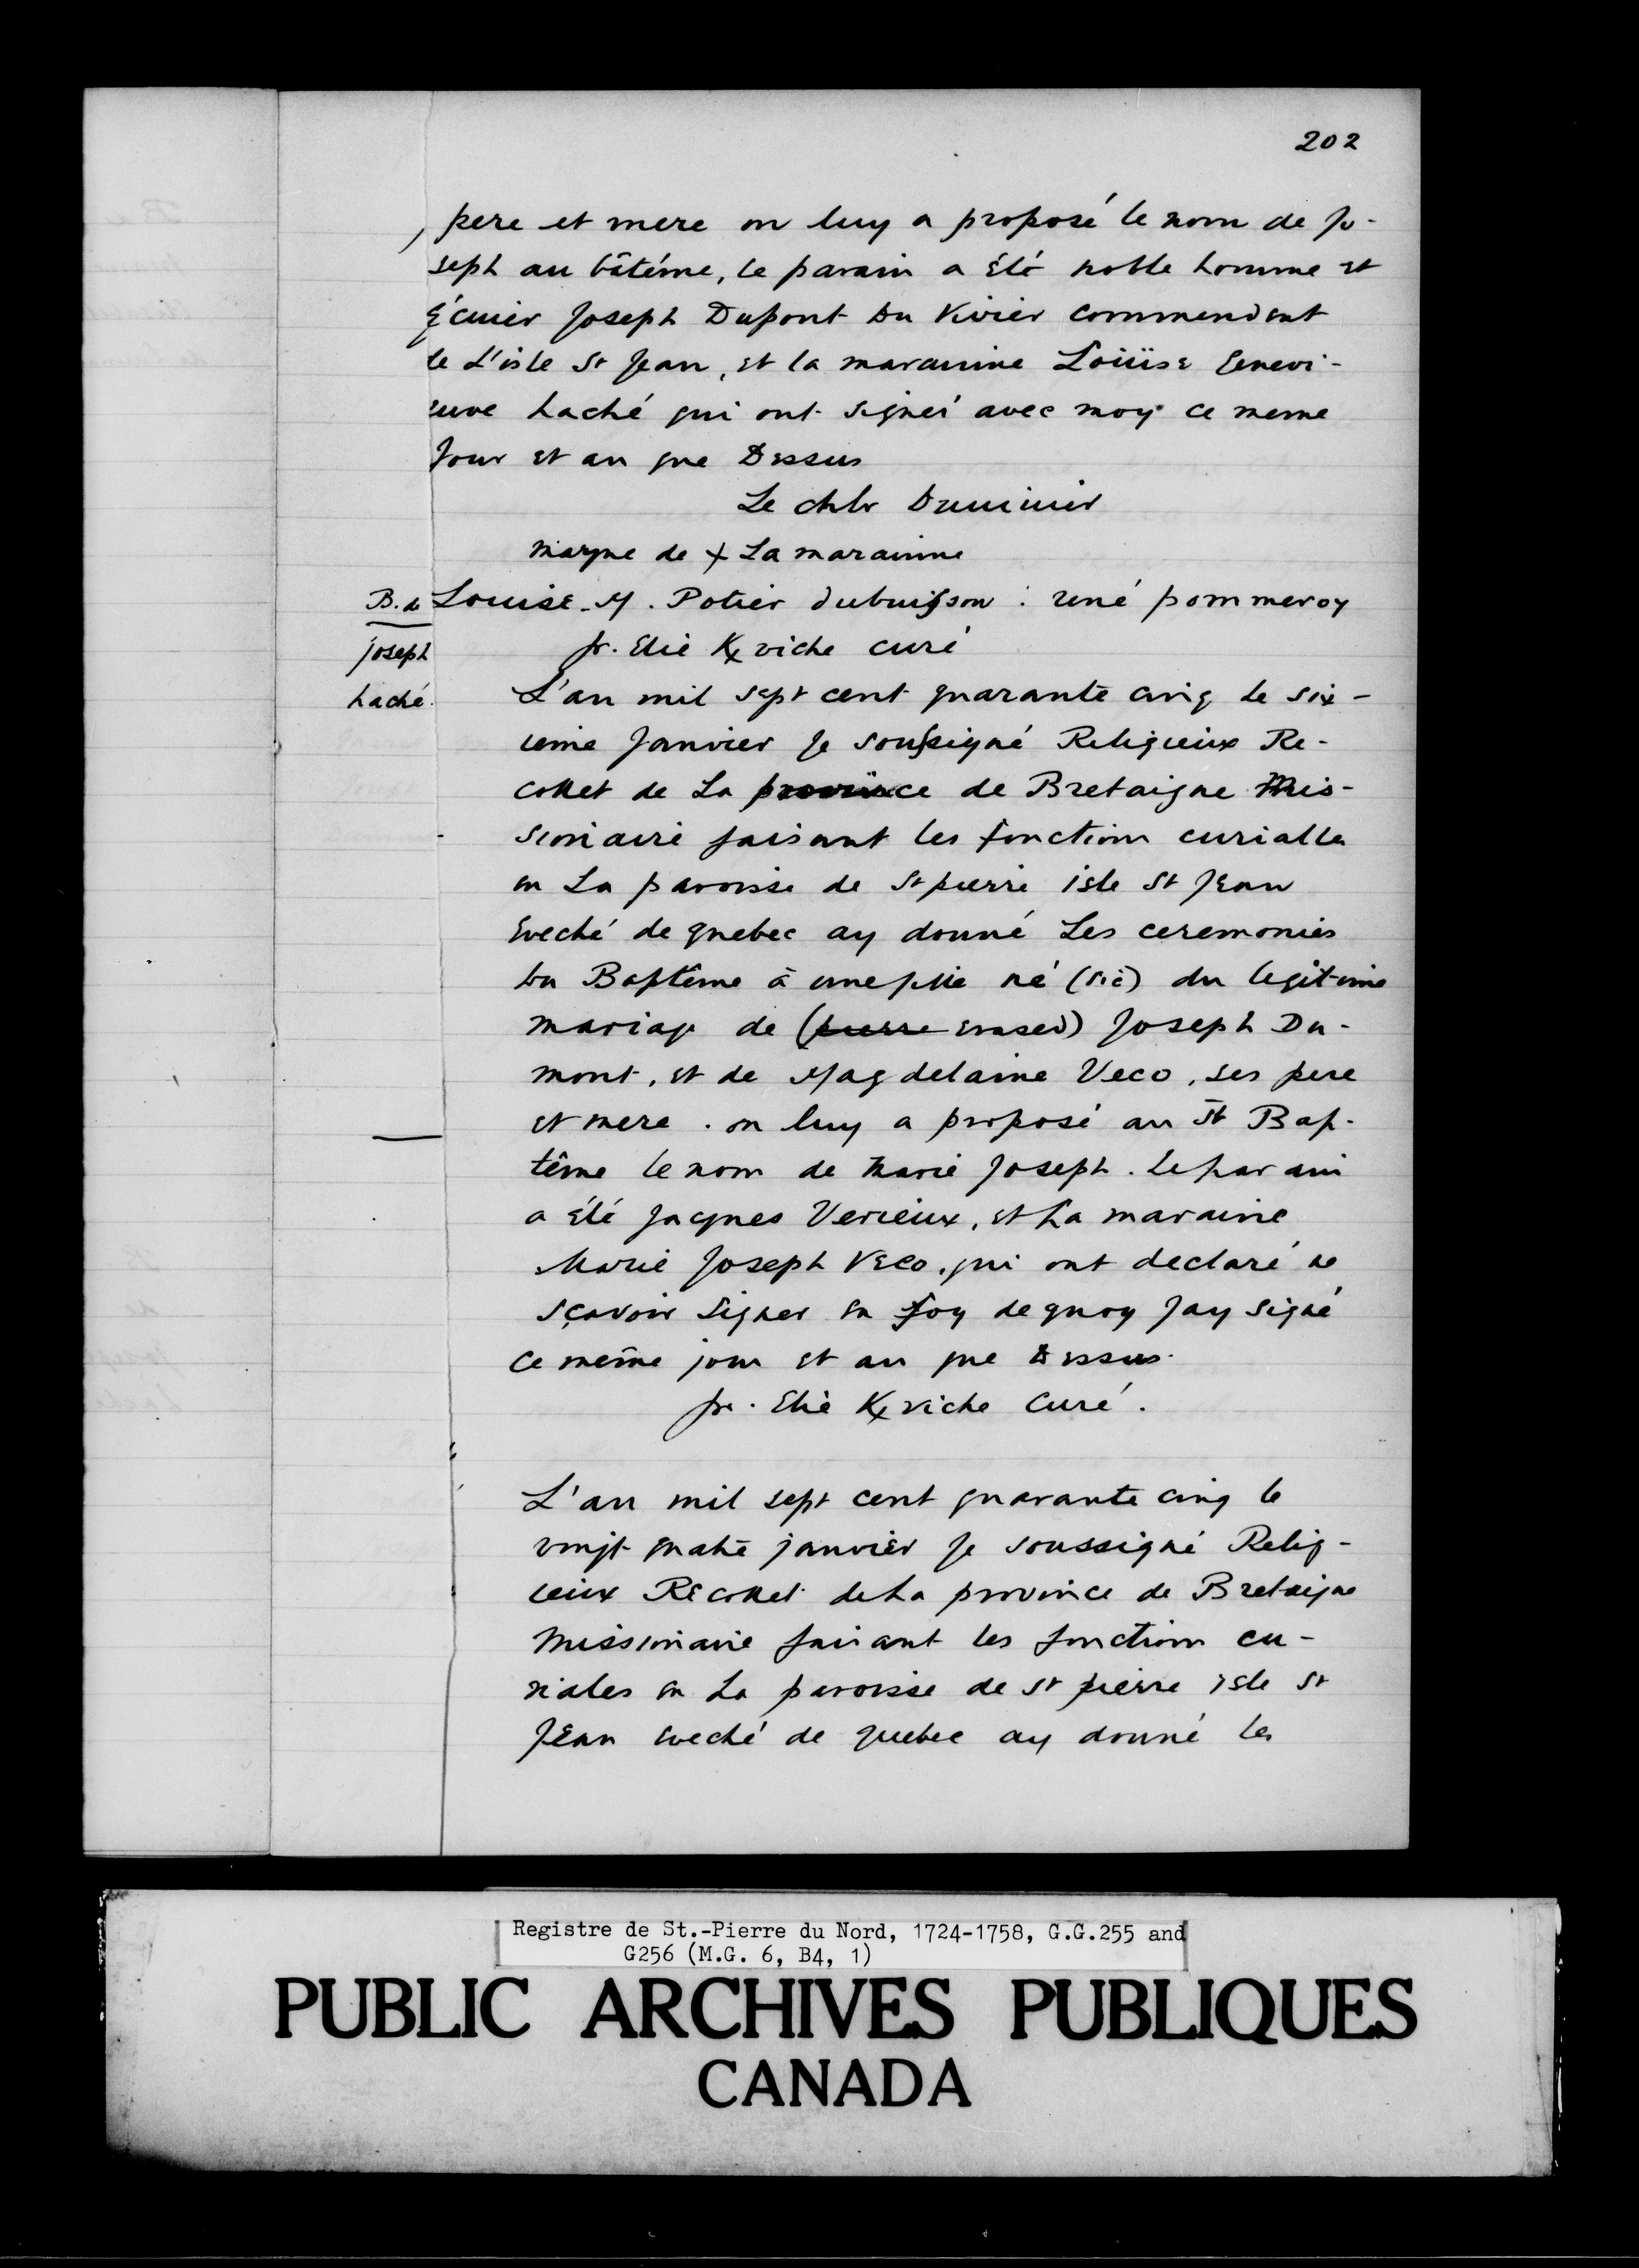 202
pere et mere on luy a proposé le nom de Jo-
seph au bâtéme, le parain a été noble homme et
Écuier Joseph Dupont Du Vivier commendent
de L'isle St Jean, et la marainne Loüise Genevi-
euve haché qui ont signéi avec moy ce meme
Jour et an que Dessus
Le chlr Duvivier
marque de + La marainne
B. de Louise. M. Potier dubuisson : rené pommeroy
joseph
haché.
fr. Elie K viche curé
L'an mil sept cent quarante cinq le six-
ieme Janvier Je soussigné Religieux Re-
collet de La province de Bretaigne Mis-
sionaire faisant les fonction curialles
en La paroisse de St pierre isle St Jean
Eveché de quebec ay donné Les ceremonies
du Baptême à une fille né (sic) du legitime
mariage de (pierre erased) Joseph Du-
mont, et de Magdelaine Veco, ses pere
et mere . on luy a proposé au St Bap-
tême le nom de Marie Joseph. Le parain
a été Jacques Verieux, et La maraine
Marie Joseph Veco, qui ont declaré ne
sçavoir Signer en foy de quoy Jay signé
ce même jour et an que Dessus.
fr. Elie K viche Curé.
L'an mil sept cent quarante cinq le
vingt quatre janvier Je soussigné Relig-
ieux Recollet de La province de Bretaigne
Missionaire faisant les fonction cu-
riales en La paroisse de St pierre isle St
Jean eveché de quebec ay donné les
Registre de St.-Pierre du Nord, 1724-1758, G.G.255 and
G256 (M.G. 6, B4, 1)
PUBLIC ARCHIVES PUBLIQUES
CANADA